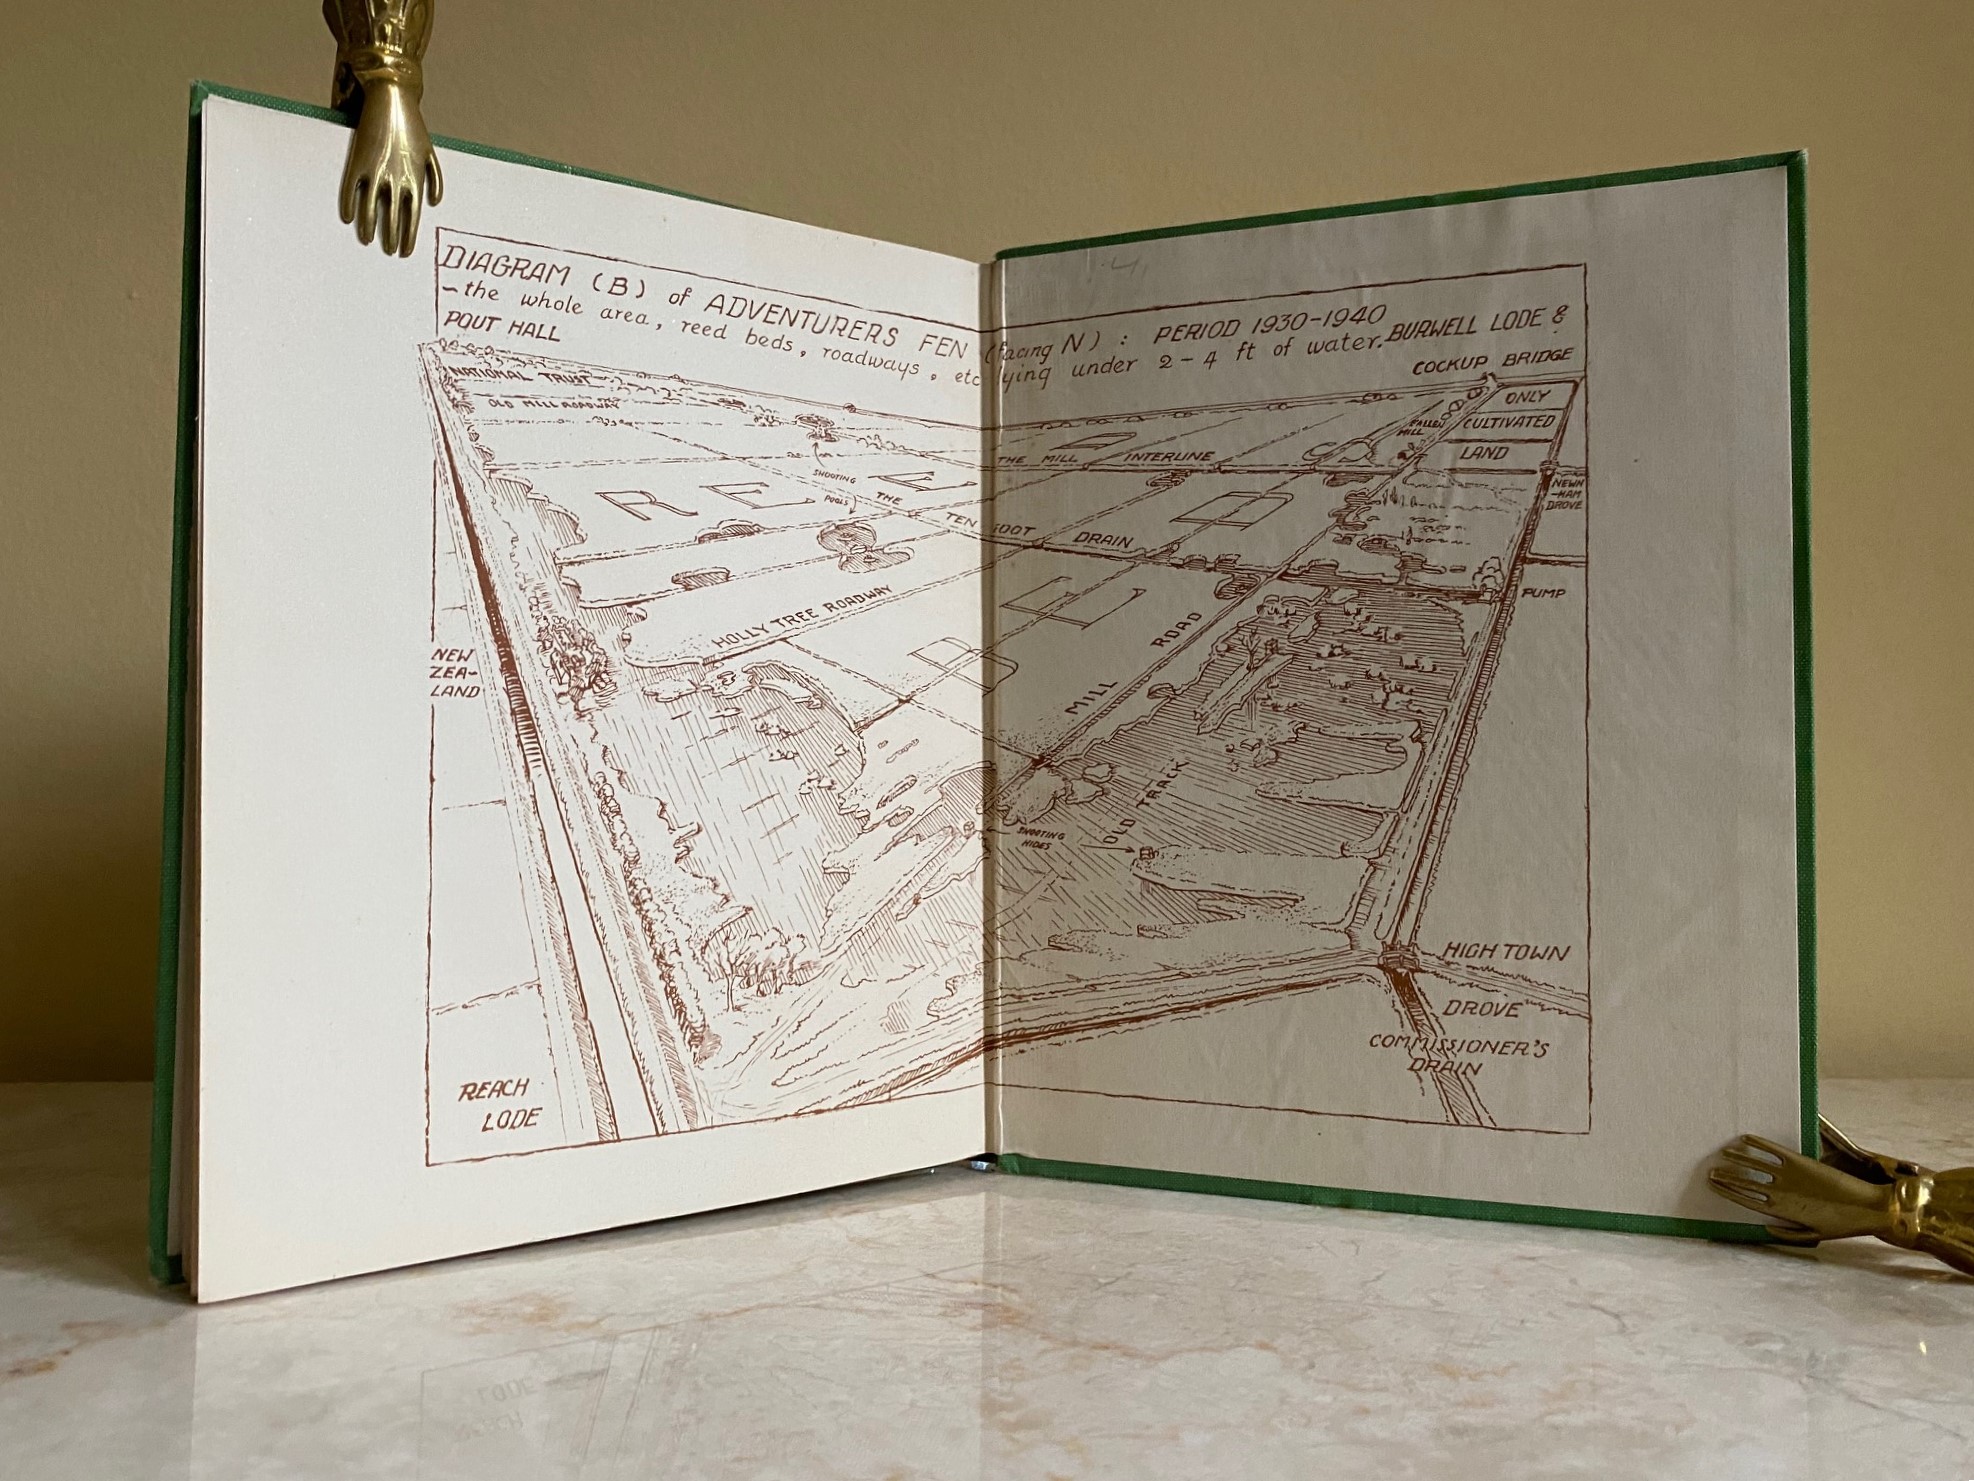 DIAGRAM (B) of ADVENTURERS FEN (facing N) : PERIOD 1930-1940
- the whole area, reed beds, roadways, etc lying under 2-4 ft of water.
BURWELL LODE &
COCKUP BRIDGE
POUT HALL
NATIONAL TRUST
OLD MILL ROADWAY
ONLY
CULTIVATED
LAND
FALLEN
MILL
THE MILL INTERLINE
NEWN
-HAM
DROVE
SHOOTING
POOLS
REED
THE TEN FOOT DRAIN
PUMP
HOLLY TREE ROADWAY
BED
MILL ROAD
NEW
ZEA-
LAND
OLD TRACK
SHOOTING
HIDES
HIGH TOWN
DROVE
COMMISSIONER'S
DRAIN
REACH
LODE